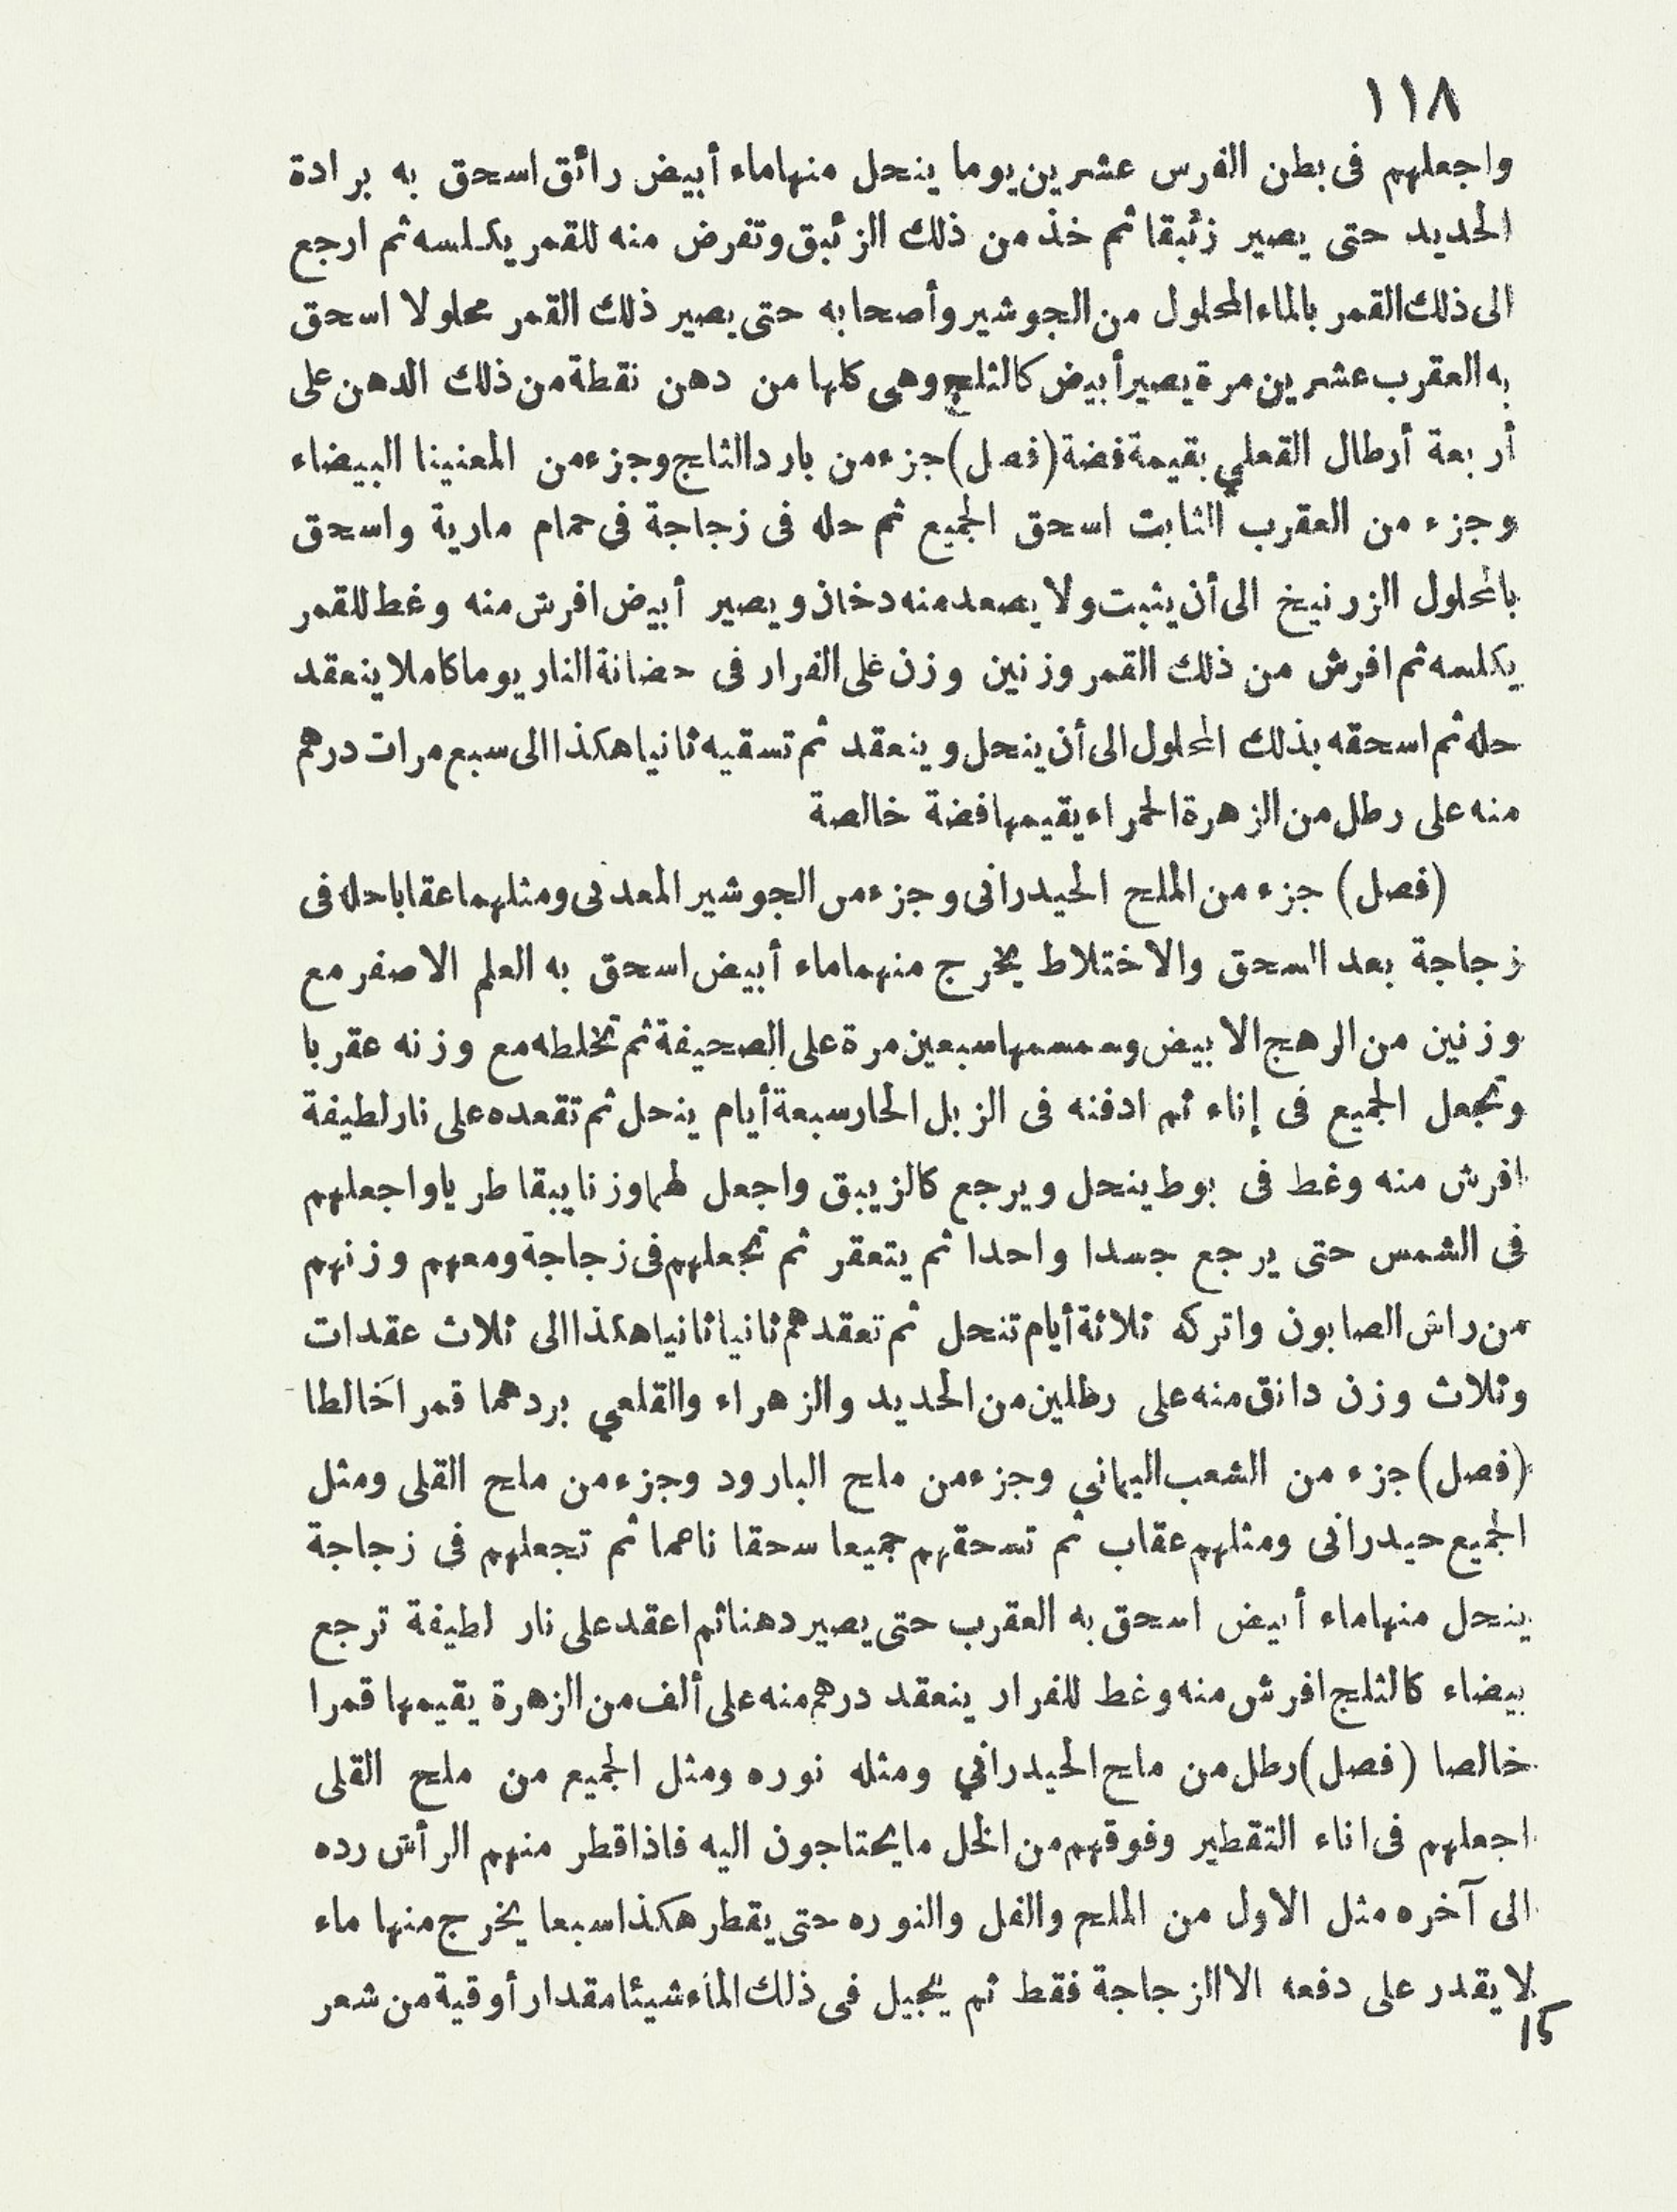 ١١٨
واجعلهم فى بطن الفرس عشرين يوما ينحل منها ماء أبيض رائق اسحق به برادة
الحديد حتى يصير زئبقا ثم خذ من ذلك الزئبق وتفرض منه للقمر يكلسه ثم ارجع
الى ذلك القمر بالماء المحلول من الجوشير وأصحابه حتى يصير ذلك القمر محلولا اسحق
به العقرب عشرين مرة يصير أبيض كالثلج وهى كلها من دهن نقطة من ذلك الدهن على
أربعة أرطال القعلي بقيمة فضة (فصل) جزء من بارد الثاج وجزء من المعنينا البيضاء
وجزء من العقرب الثابت اسحق الجميع ثم حله فى زجاجة فى حمام مارية واسحق
بالمحلول الزرنيخ الى أن يثبت ولا يصعد منه دخان ويصير أبيض افرش منه وغط للقمر
يكلسه ثم افرش من ذلك القمر وزنين وزن على الفرار فى حضانة النار يوما كاملا ينعقد
حله ثم اسحقه بذلك المحلول الى أن ينحل وينعقد ثم تسقيه ثانيا هكذا الى سبع مرات درهم
منه على رطل من الزهرة الحمراء يقيمها فضة خالصة
(فصل) جزء من الملح الحيدرانى وجزء من الجوشير المعدنى ومثلهما عقابا حله فى
زجاجة بعد السحق والاختلاط يخرج منهما ماء أبيض اسحق به العلم الاصفر مع
وزنين من الرهج الابيض وسمسمها سبعين مرة على الصحيفة ثم تخلطه مع وزنه عقربا
وتجعل الجميع فى إناء ثم ادفنه فى الزبل الحار سبعة أيام ينحل ثم تقعده على نار لطيفة
افرش منه وغط فى بوط ينحل ويرجع كالزيبق واجعل لهما وزنا يبقا طريا واجعلهم
فى الشمس حتى يرجع جسدا واحدا ثم يتعقر ثم تجعلهم فى زجاجة ومعهم وزنهم
من راش الصابون واتركه ثلاثة أيام تنحل ثم تعقدهم ثانيا ثانيا هكذا الى ثلاث عقدات
وثلاث وزن دانق منه على رطلين من الحديد والزهراء والقلعي بردهما قمرا خالطا
(فصل) جزء من الشعب اليماني وجزء من ملح البارود وجزء من ملح القلى ومثل
الجميع حيدرانى ومثلهم عقاب ثم تسحقهم جميعا سحقا ناعما ثم تجعلهم فى زجاجة
ينحل منها ماء أبيض اسحق به العقرب حتى يصير دهنا ثم اعقد على نار لطيفة ترجع
بيضاء كالثلج افرش منه وغط للفرار ينعقد درهم منه على ألف من الزهرة يقيمها قمرا
خالصا (فصل) رطل من ماح الحيدراني ومثله نوره ومثل الجميع من ملح القلى
اجعلهم فى اناء التقطير وفوقهم من الخل ما يحتاجون اليه فاذا قطر منهم الرأش رده
الى آخره مثل الاول من الملح والفل والنوره حتى يقطر هكذا سبعا يخرج منها ماء
لا يقدر على دفعه الا الزجاجة فقط ثم يجيل فى ذلك الماء شيئا مقدار أوقية من شعر